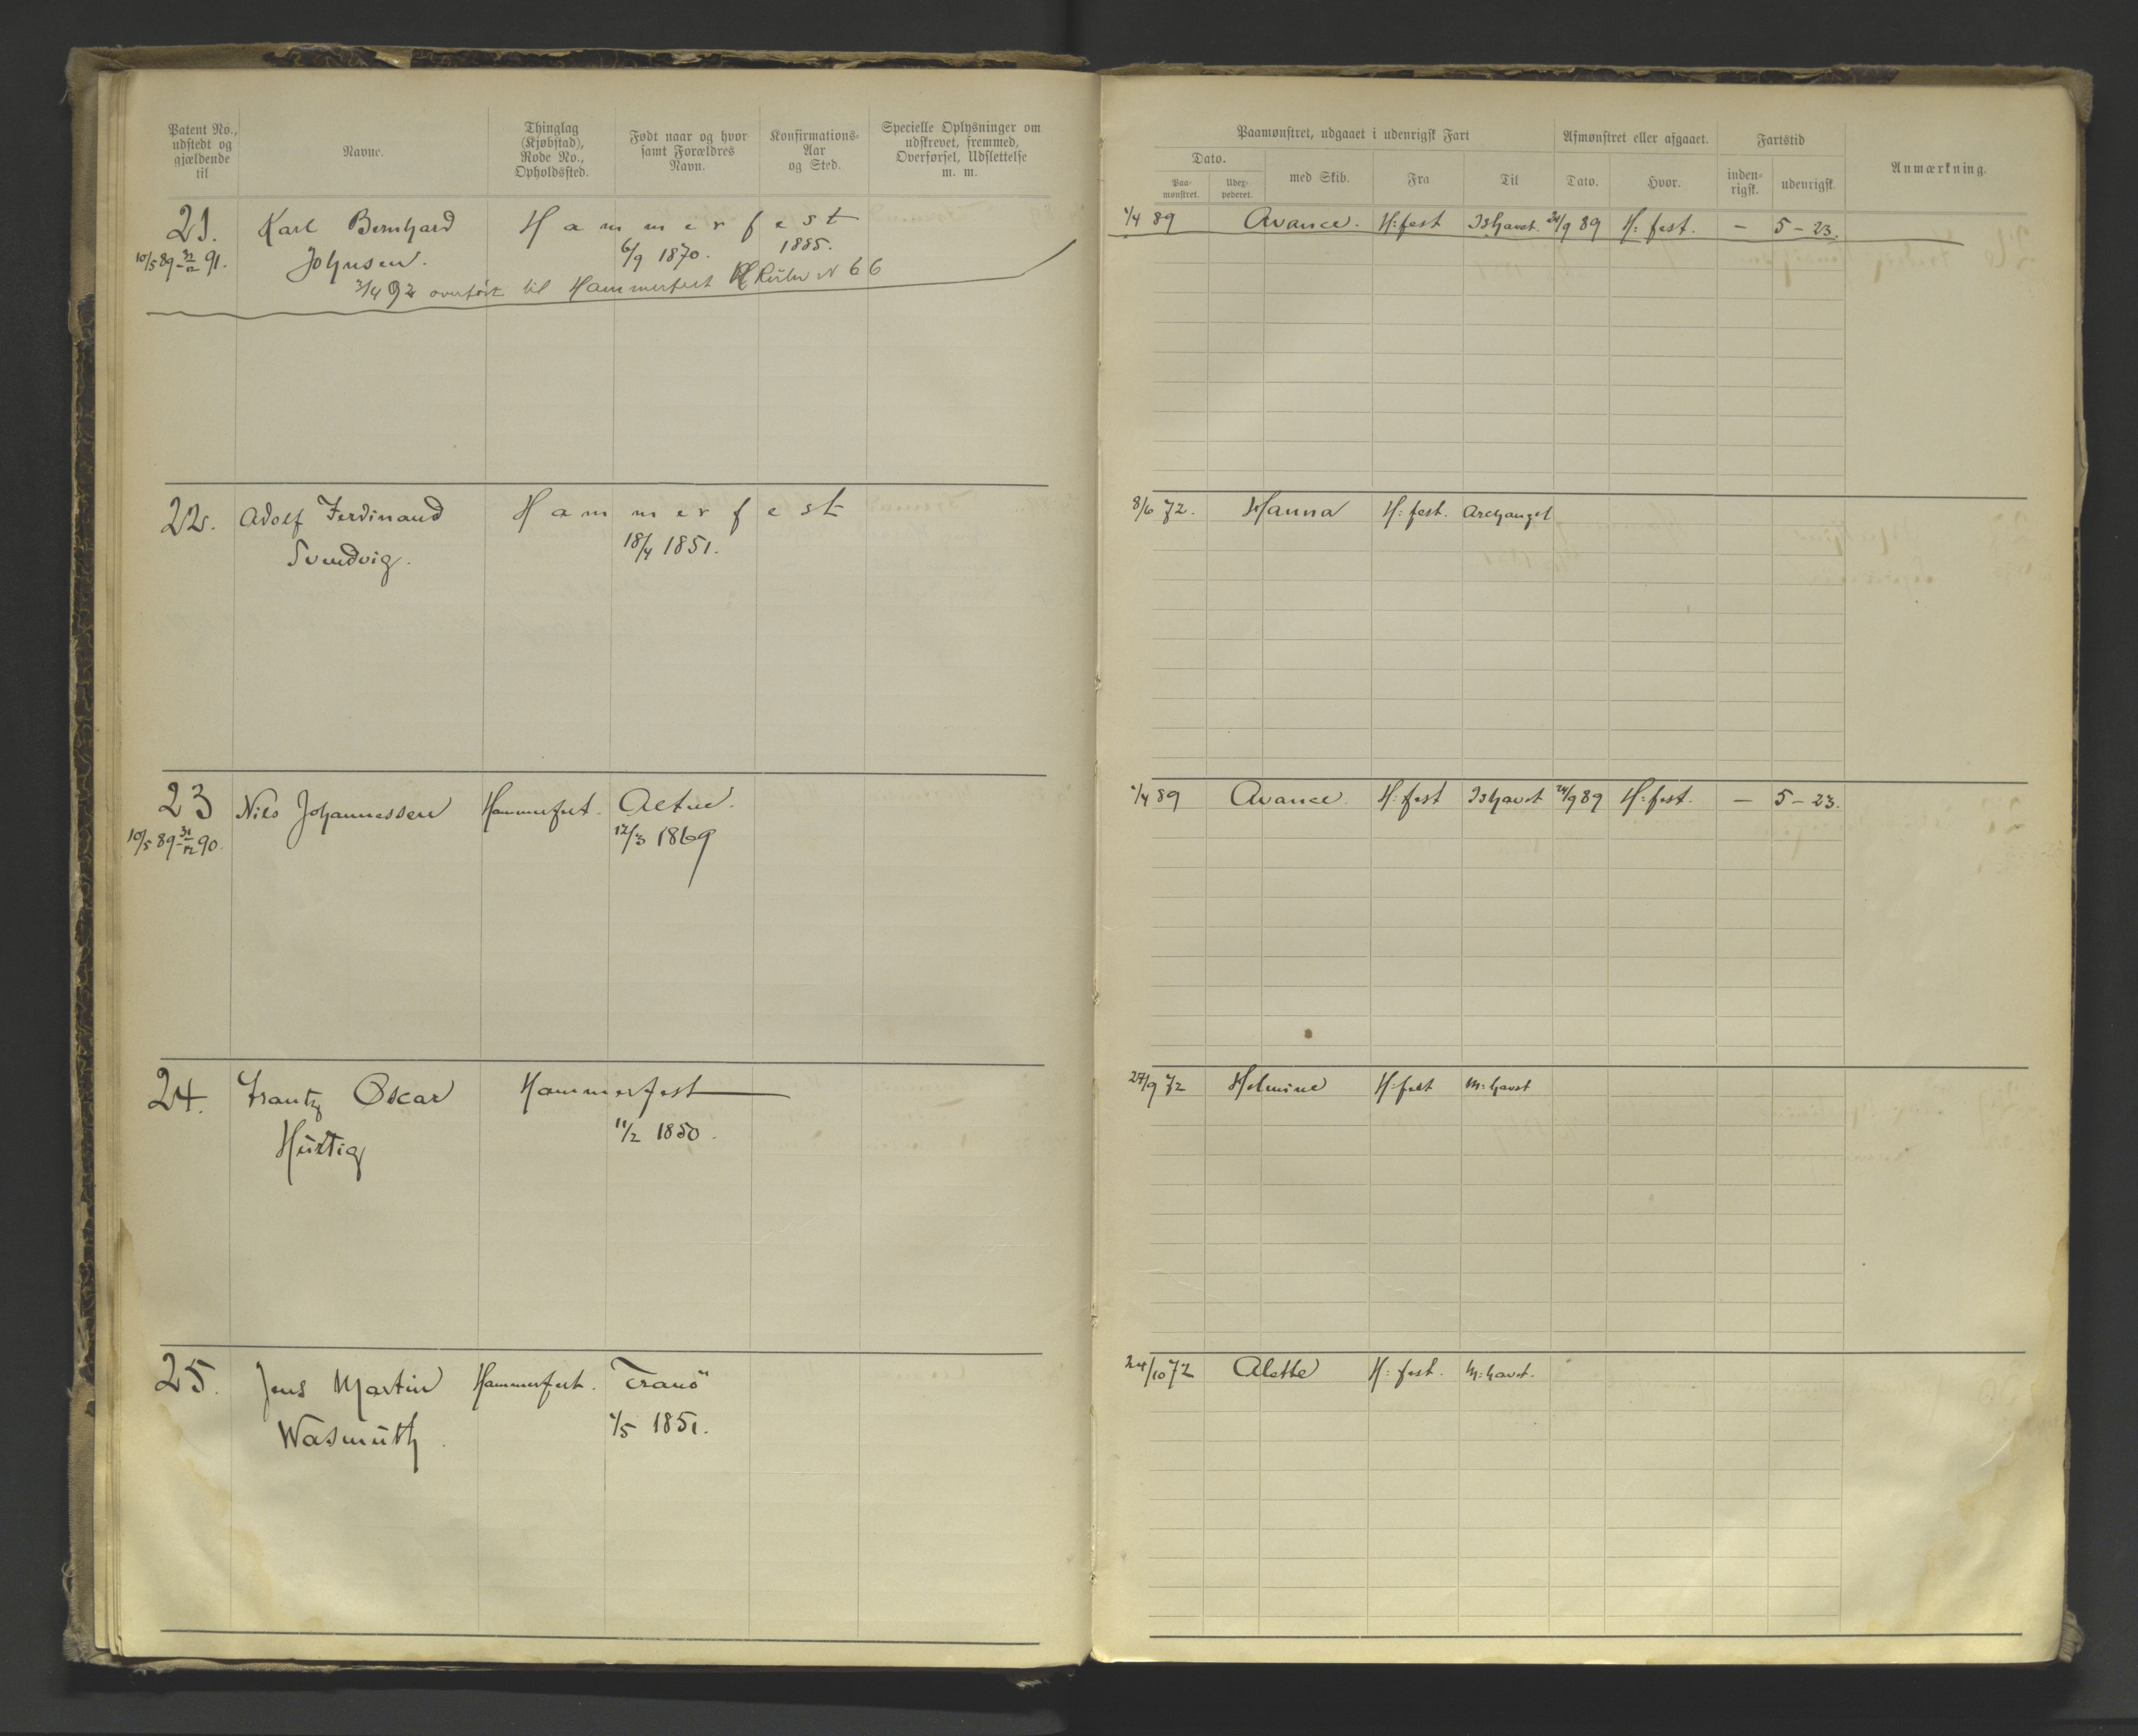 Patent No., udstedt og gjældende til
Navne.
Thinglag (Kjøbstad), Rode No., Opholdssted.
Født naar og hvor samt Forældres Navn.
Konfirmations-Aar og Sted.
Specielle Oplysninger om udskrevet, fremmed, Overførsel, Udslettelse m. m.
21. Karl Bernhard Hammerfest
10/5 89 - 31/12 91. Johnsen. 6/9 1870. 1885.
3/4 92 overført til Hammerfest N 66
22. Adolf Ferdinand Hammerfest
Svendvig. 18/4 1851.
23 Nils Johannessen Hammerfest. Alten.
10/5 89 - 31/12 90. 12/3 1869
24. Frantz Oscar Hammerfest
Hurtig 11/2 1850.
25. Jens Martin Hammerfest. Tranö
Wasmuth /5 1851.
Paamønstret, udgaaet i udenrigsk Fart
Afmønstret eller afgaaet.
Fartstid
Anmærkning.
Dato.
med Skib.
Fra
Til
Dato.
Hvor.
inden-rigsk.
udenrigsk.
Paa-mønstret.
Udex-pederet.
/4 89 Avance. H:fest Ishavet. 24/9 89 H:fest. — 5 - 23.
8/6 72. Hanna H:fest. Archangel
/4 89 Avance. H:fest Ishavet 24/9 89 H:fest. — 5 - 23.
27/9 72 Helmine H:fest M:havet
24/10 72 Alette H:fest. M:havet.